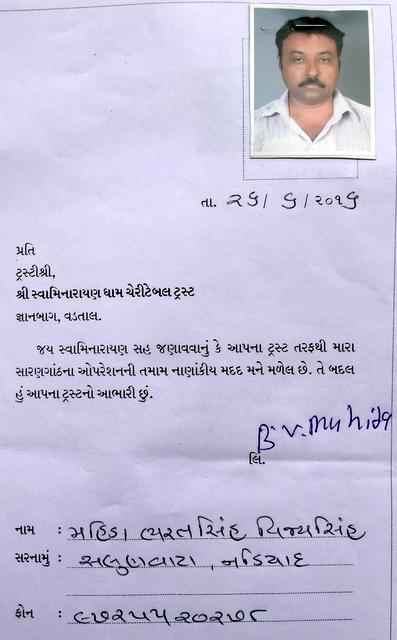 તા. ૨૬/ ૬/૨૦૧૬
પ્રતિ
ટ્રસ્ટીશ્રી,
શ્રી સ્વામિનારાયણ ધામ ચેરીટેબલ ટ્રસ્ટ
જ્ઞાનબાગ, વડતાલ.
જય સ્વામિનારાયણ સહ જણાવવાનું કે આપના ટ્રસ્ટ તરફથી મારા
સારણગાંઠના ઓપરેશનની તમામ નાણાંકીય મદદ મને મળેલ છે. તે બદલ
હું આપના ટ્રસ્ટનો આભારી છું.
B.V.Mahida
લિ.
નામ : મહિડા ભરતસિંહ વિજયસિંહ
સરનામું : સલુણવાટા, નડિયાદ
ફોન : ૯૭૨૫૫૨૦૨૭૮